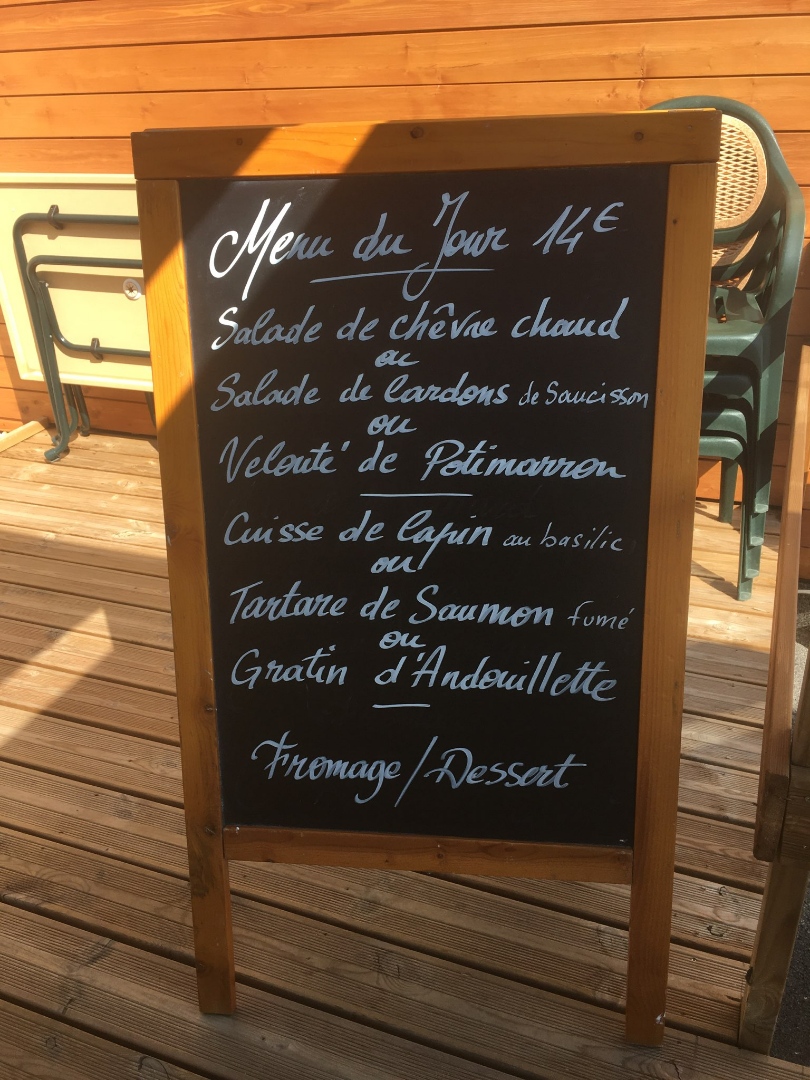 Menu du Jour 14€
Salade de chêvre chaud
ou
Salade de lardons de Saucisson
ou
Velouté de Potimarron
Cuisse de lapin au basilic
ou
Tartare de Saumon fumé
ou
Gratin d'Andouillette
Fromage/Dessert